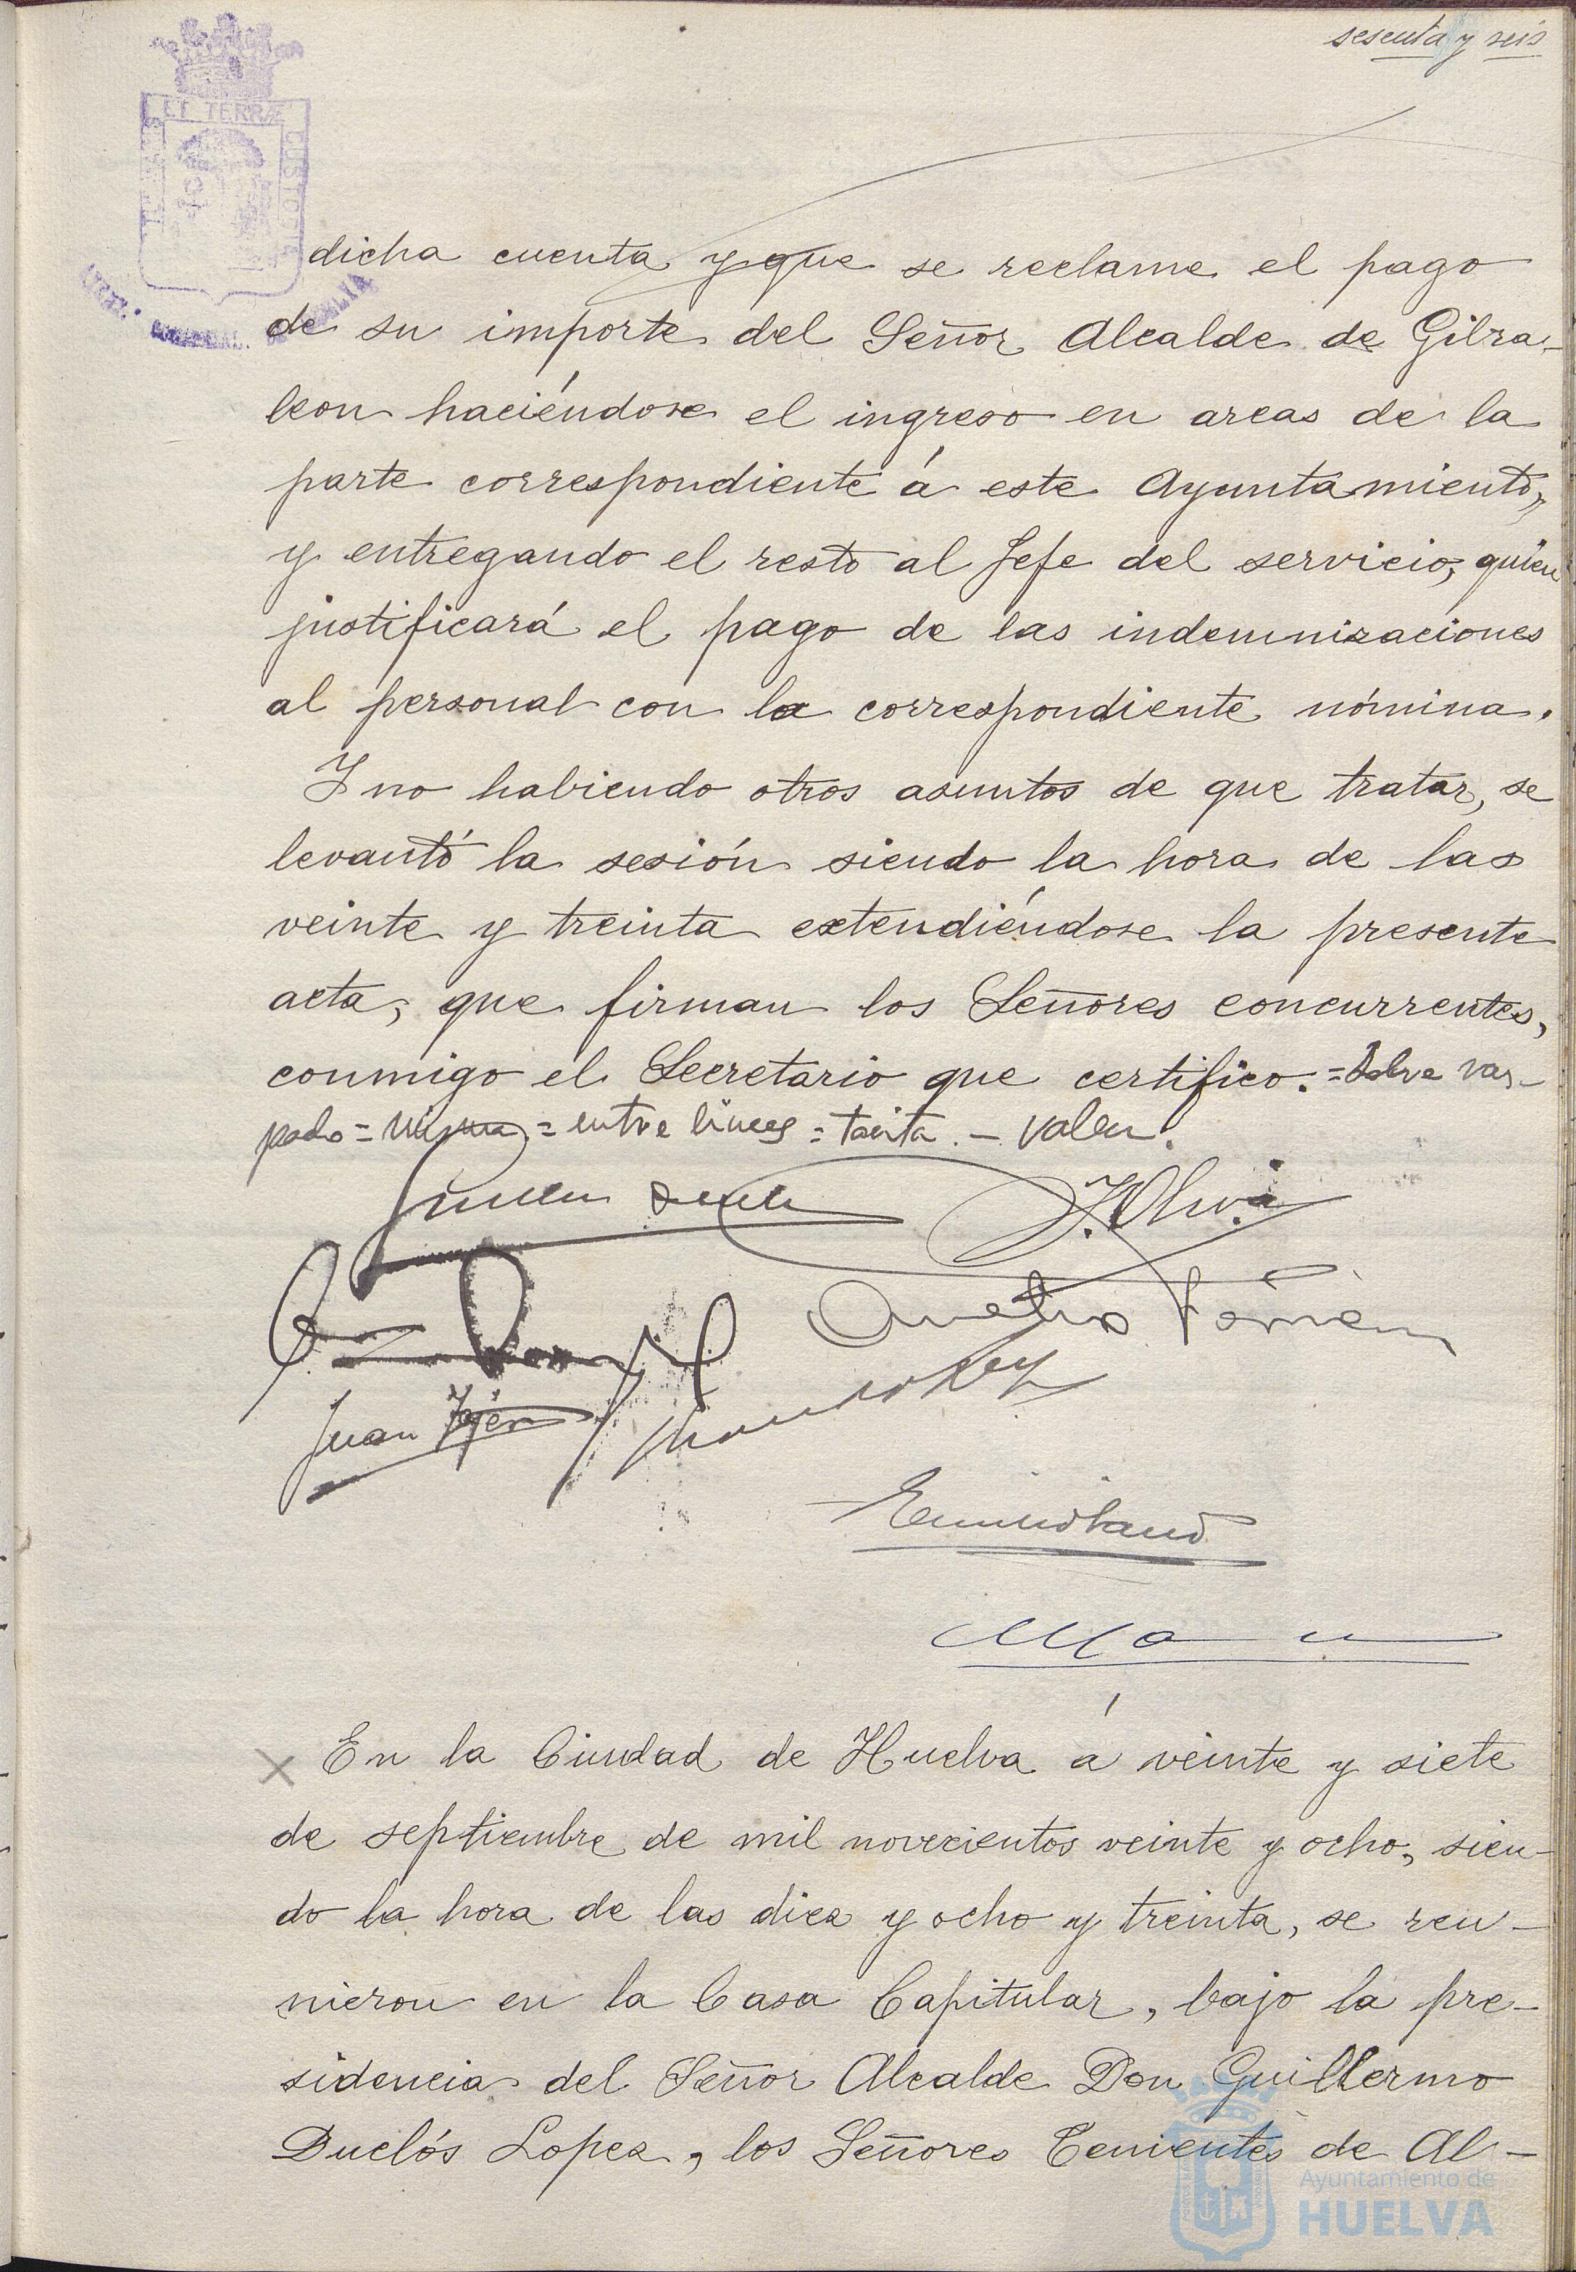 sesenta y seis
dicha cuenta y que se reclame el pago
de su importe del Señor Alcalde de Gibra-
leon haciéndose el ingreso en arcas de la
parte correspondiente á este Ayuntamiento,
y entregando el resto al Jefe del servicio, quien
justificará el pago de las indemnizaciones
al personal con la correspondiente nómina.
Y no habiendo otros asuntos de que tratar, se
levantó la sesión siendo la hora de las
veinte y treinta extendiéndose la presente
acta, que firman los Señores concurrentes,
conmigo el Secretario que certifico. = Sobre ras-
pado = = entre lineas = tacita. - Valen.
J. Oliva
Juan Tejero
En la Ciudad de Huelva á veinte y siete
de septiembre de mil novecientos veinte y ocho, sien-
do la hora de las diez y ocho y treinta, se reu-
nieron en la Casa Capitular, bajo la pre-
sidencia del Señor Alcalde Don Guillermo
Duclós Lopez, los Señores Tenientes de Al-
Ayuntamiento de
HUELVA